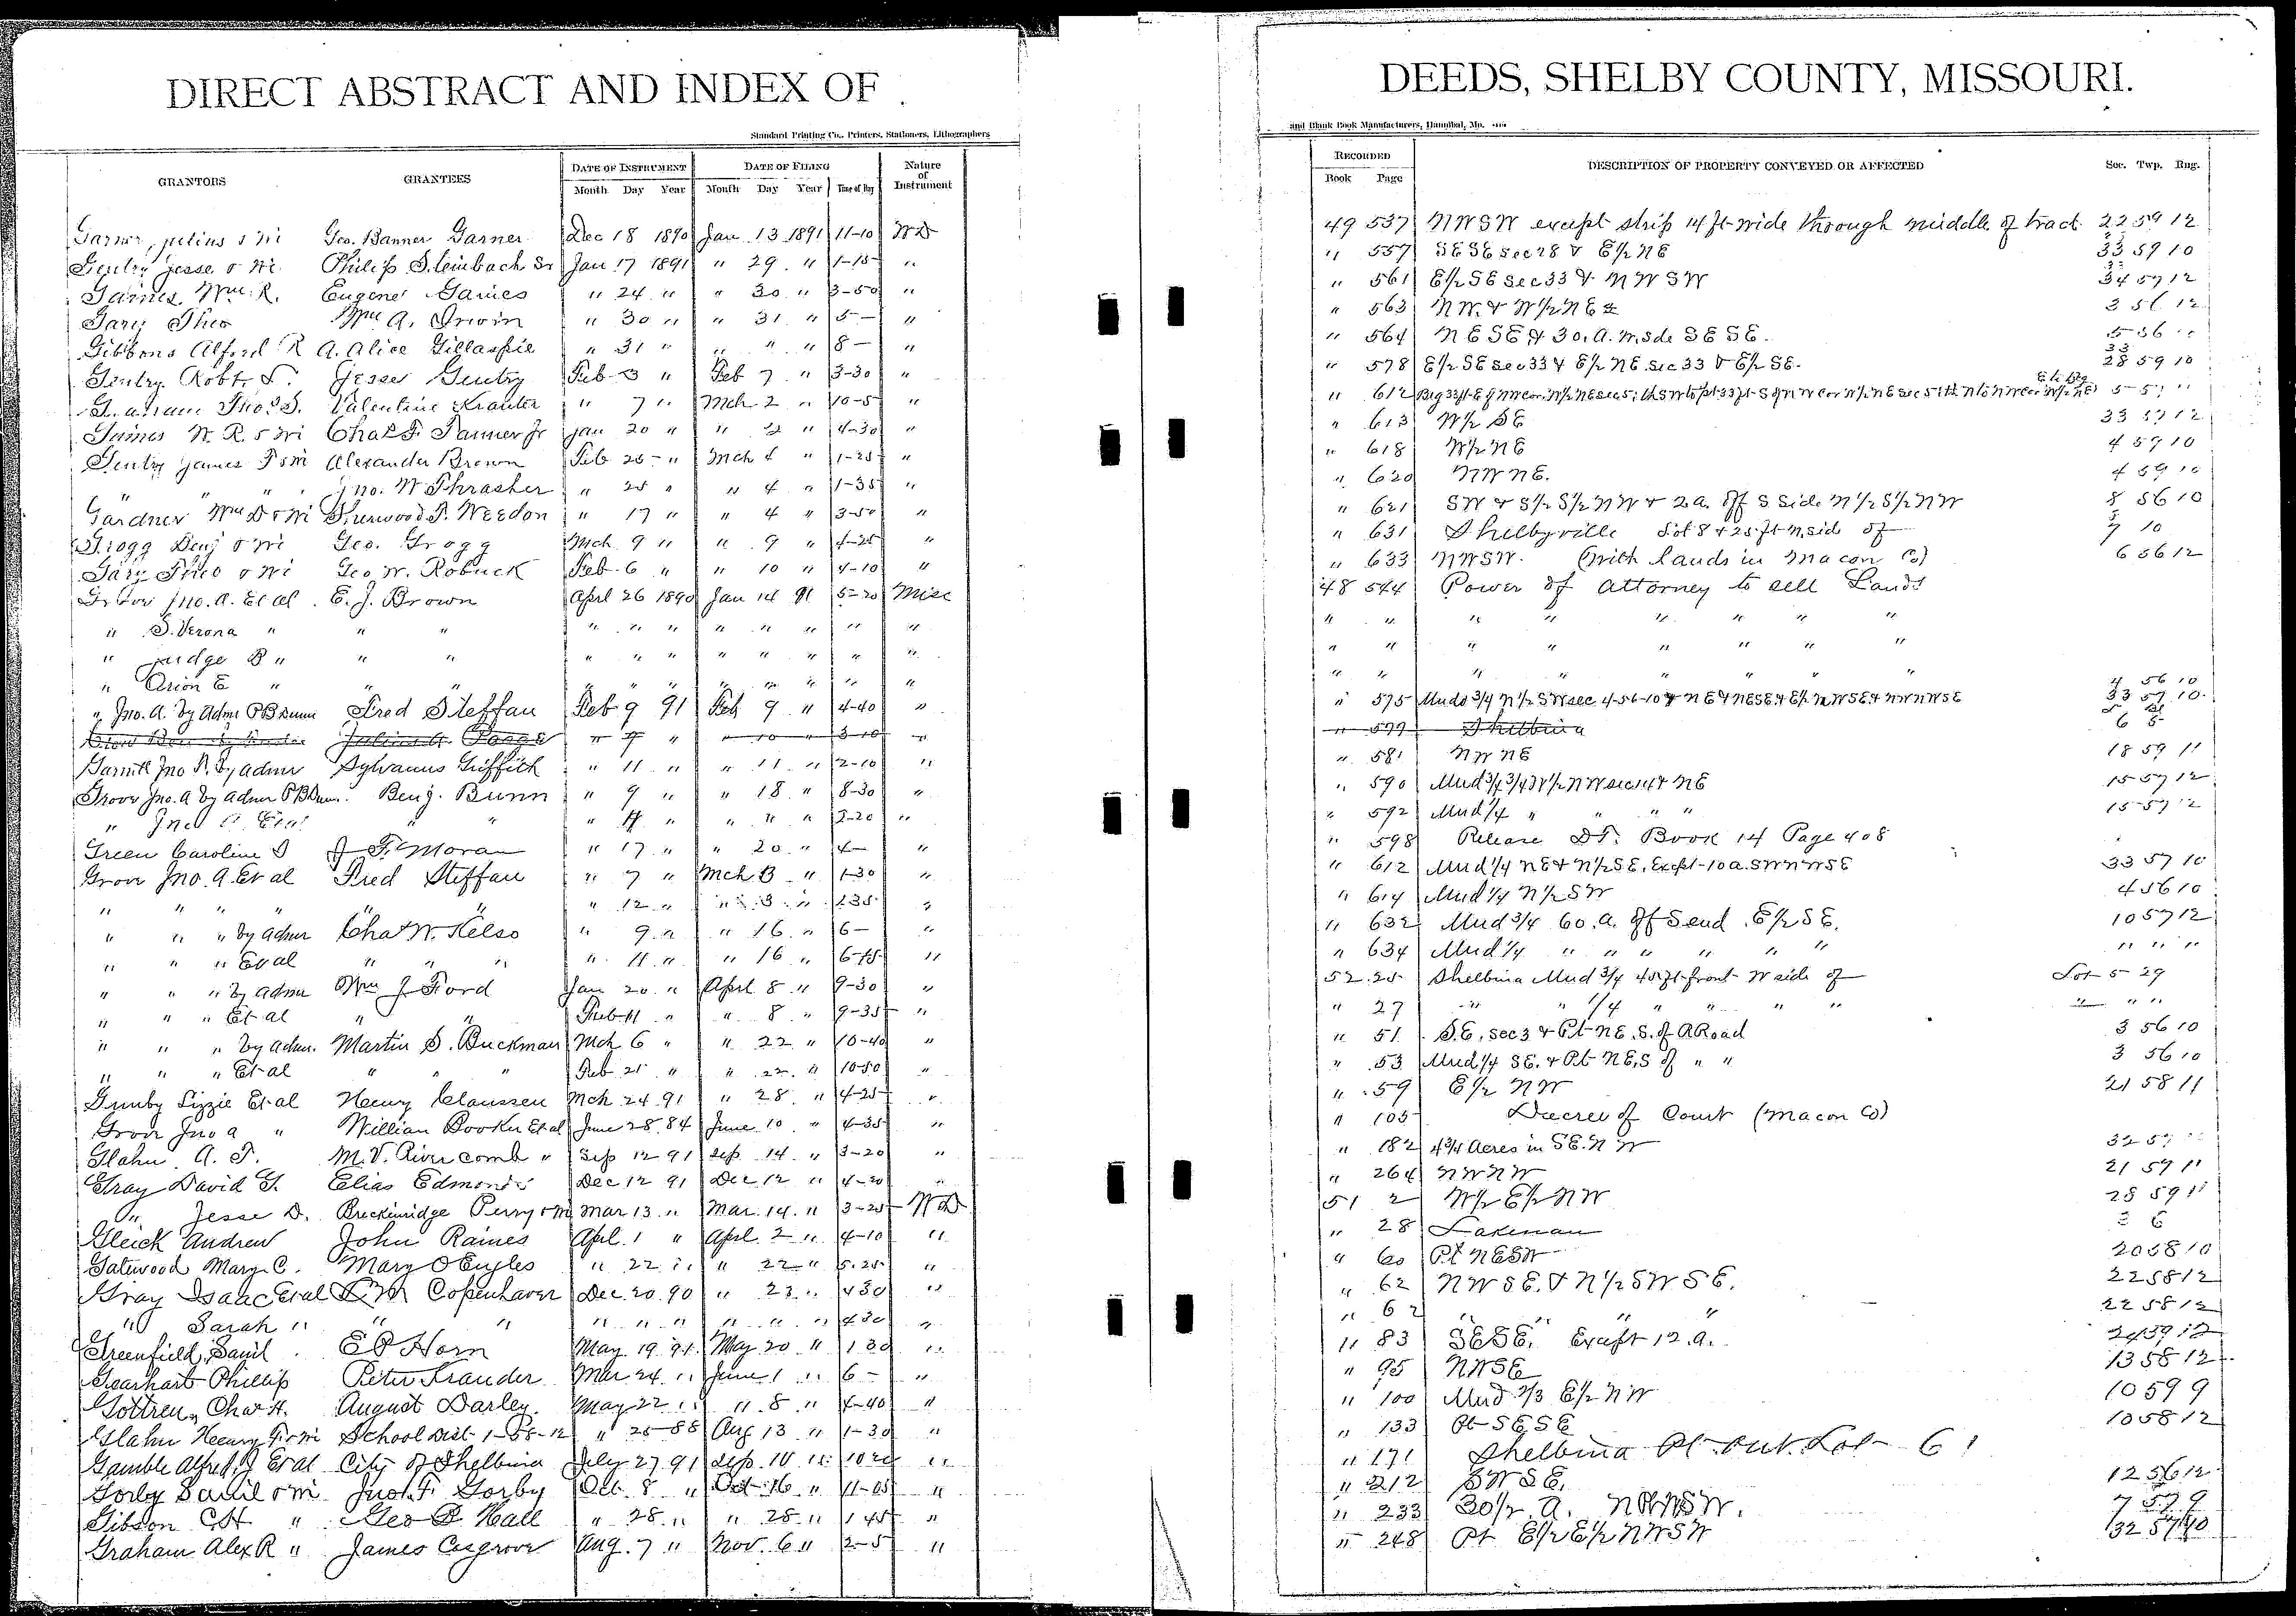 DIRECT ABSTRACT AND INDEX OF
Standard Printing Co., Printers, Stationers, Lithographers
GRANTORS GRANTEES DATE OF INSTRUMENT DATE OF FILING Nature of Instrument
Month Day Year Month Day Year Time of Day
Garner, Julius & Wi Geo. Banner Garner Dec 18 1890 Jan 13 1891 11-10 WD
Gentry Jesse & Wi Philip Steinbach Sr Jan 17 1891 " 29 " 1-15 "
Gaines Wm R. Eugene Gaines " 24 " " 30 " 3-50 "
Gary Theo Wm A. Irwin " 30 " " 31 " 5- "
Gibbons Alford R A. Alice Gillaspie " 31 " " " " 8- "
Gentry Robt. S. Jesse Gentry Feb 3 " Feb 7 " 3-30 "
Graham Thos. S. Valentine Krauter " 7 " Mch 2 " 10-5 "
Gaines W. R. & Wi Chas F. Tanner Jr Jan 20 " " 2 " 4-30 "
Gentry James T & Wi Alexander Brown Feb 25 " Mch 4 " 1-25 "
" " " Jno. W Thrasher " 25 " " 4 " 1-35 "
Gardner Wm D & Wi Sherwood P. Weedon " 17 " " 4 " 3-50 "
Grogg Benj & Wi Geo. Grogg Mch 9 " " 9 " 4-25 "
Gary Theo & Wi Geo. W. Robuck Feb 6 " " 10 " 4-10 "
Grove Jno. A. Et al E. J. Brown April 26 1890 Jan 14 91 5-20 Misc
" S. Verona " " " " " " " " " " "
" Judge B " " " " " " " " " " "
" Orion E " " " " " " " " " " "
" Jno. A. by Admr P B Dunn Fred Steffan Feb 9 91 Feb 9 " 4-40 "
" 9 " " 10 " 3 10 "
Garnett Jno R. by Admr Sylvanus Griffith " 11 " " 11 " 2-10 "
Grove Jno. A by Admr P B Dunn Benj. Bunn " 9 " " 18 " 8-30 "
" Jno A. Et al " " " 11 " " " " "
Green Caroline S J. F. Moran " 17 " " 20 " 4- "
Grove Jno. A. Et al Fred Steffan " 7 " Mch 3 " 1-30 "
" " " " " " " 12 " " 3 " 1 35 "
" " " by Admr Chas W. Kelso " 9 " " 16 " 6- "
" " " Et al " " " " 11 " " 16 " 6-15 "
" " " by Admr Wm J Ford Jan 20 " April 8 " 9-30 "
" " " Et al " " Feb 11 " " 8 " 9-35 "
" " " by Admr. Martin S. Buckman Mch 6 " " 22 " 10-40 "
" " " Et al " " " Feb 21 " " 22 " 10-50 "
Gunby Lizzie Et al Henry Claussen Mch 24 91 " 28 " 4-25 "
Grove Jno A " William Booker Et al June 28 84 June 10 " 4-35 "
Glahn A. F. M. V. Rivercomb " Sep 12 91 Sep 14 " 3-20 "
Gray David G. Elias Edmonds Dec 12 91 Dec 12 " 4-20 "
" Jesse D. Breckinridge Perry & Wi Mar 13 " Mar. 14 " 3-25 WD
Gleick Andrew John Raines April 1 " April 2 " 4-10 "
Gatewood Mary C. Mary O Euyles " 22 " " 22 " 5.25 "
Gray Isaac Et al Copenhaver Dec. 20. 90 " 23 " 4 30 "
" Sarah " " " " " " " " " 4 30 "
Greenfield, Saml. E P Horn May 19 91 May 20 " 1 30 "
Gearhart Phillip Peter Krauder Mar 24 " June 1 " 6- "
Gottren, Chas H. August Darley May 22 " " 8 " 4-40 "
Glahn Henry G & Wi School Dist 1-58-12 " 25-88 Aug 13 " 1-30 "
Gamble Alfred J Et al City of Shelbina July 27 91 Sep. 10 " 10 20 "
Gorby Samil & Wi Jno. F. Gorby Oct. 8 " Oct 16 " 11-05 "
Gibson C H " Geo D. Hall " 28 " " 28 " 1 45 "
Graham Alex R " James Cosgrove Aug. 7 " Nov. 6 " 2-5 "
DEEDS, SHELBY COUNTY, MISSOURI.
and Blank Book Manufacturers, Hannibal, Mo.
RECORDED DESCRIPTION OF PROPERTY CONVEYED OR AFFECTED Sec. Twp. Rng.
Book Page
49 537 NWSW except strip 14 ft wide through middle of tract 22 59 12
" 557 SESE sec 28 & E½ NE 33 59 10
" 561 E½ SE sec 33 & NWSW 34 57 12
" 563 NW. & W½ NE 3 56 12
" 564 NESE & 30. A. N. side SESE. 5 56 "
" 578 E½ SE sec 33 & E½ NE sec 33 & E½ SE. 28 59 10
" 612
" 613 W½ SE 33 57 12
" 618 W½ NE 4 59 10
" 620 NWNE. 4 59 10
" 621 SW & S½ S½ NW & 2a. off S side N½ S½ NW 8 56 10
" 631 Shelbyville Lot 8 & 25 ft N. side of 7 10
" 633 NWSW. (With Lands in Macon Co) 6 56 12
48 544 Power of Attorney to sell Lands
" " " " " " " "
" " " " " " " "
" " " " " " " "
" 575 Und 3/4 N½ SW sec 4-56-10 & NE & NESE & E½ NWSE & NWNWSE 33 57 10
" 577 Shelbina 6 8
" 581 NWNE 18 59 11
" 590 Und 3/4 W½ NW sec 14 & NE 15 57 12
" 592 Und 1/4 " " " 15 57 12
" 598 Release DT. Book 14 Page 408
" 612 Und 1/4 NE & N½ SE. Except 10 a. SWNWSE 33 57 10
" 614 Und 1/4 N½ SW 4 56 10
" 632 Und 3/4 60. a. off S end E½ SE. 10 57 12
" 634 Und 1/4 " " " " " " " " "
52 25 Shelbina Und 3/4 45 ft front W side of Lot 5 29
" 27 " " 1/4 " " " " " " "
" 51 S.E. sec 3 & Pt NE. S. of R Road 3 56 10
" 53 Und 1/4 SE. & Pt NE, S of " " 3 56 10
" 59 E½ NW 21 58 11
" 105 Decree of Court (Macon Co)
" 182 4¾ Acres in SE. NW 32 57
" 264 NWNW 21 59 11
51 2 W½ E½ NW 28 59 11
" 28 Lakenan 3 6
" 60 Pt NESW 20 58 10
" 62 NWSE. & N½ SWSE. 22 58 12
" 62 " " " 22 58 12
" 83 SESE. Except 12 a. 24 59 12
" 95 NWSE 13 58 12
" 100 Und 2/3 E½ NW 10 59 9
" 133 Pt SESE 10 58 12
" 171 Shelbina Pt Out Lot 6
" 212 SWSE. 12 56 12
" 233 30½ A. NWSW. 7 57 9
" 248 Pt E½ E½ NWSW 32 57 10